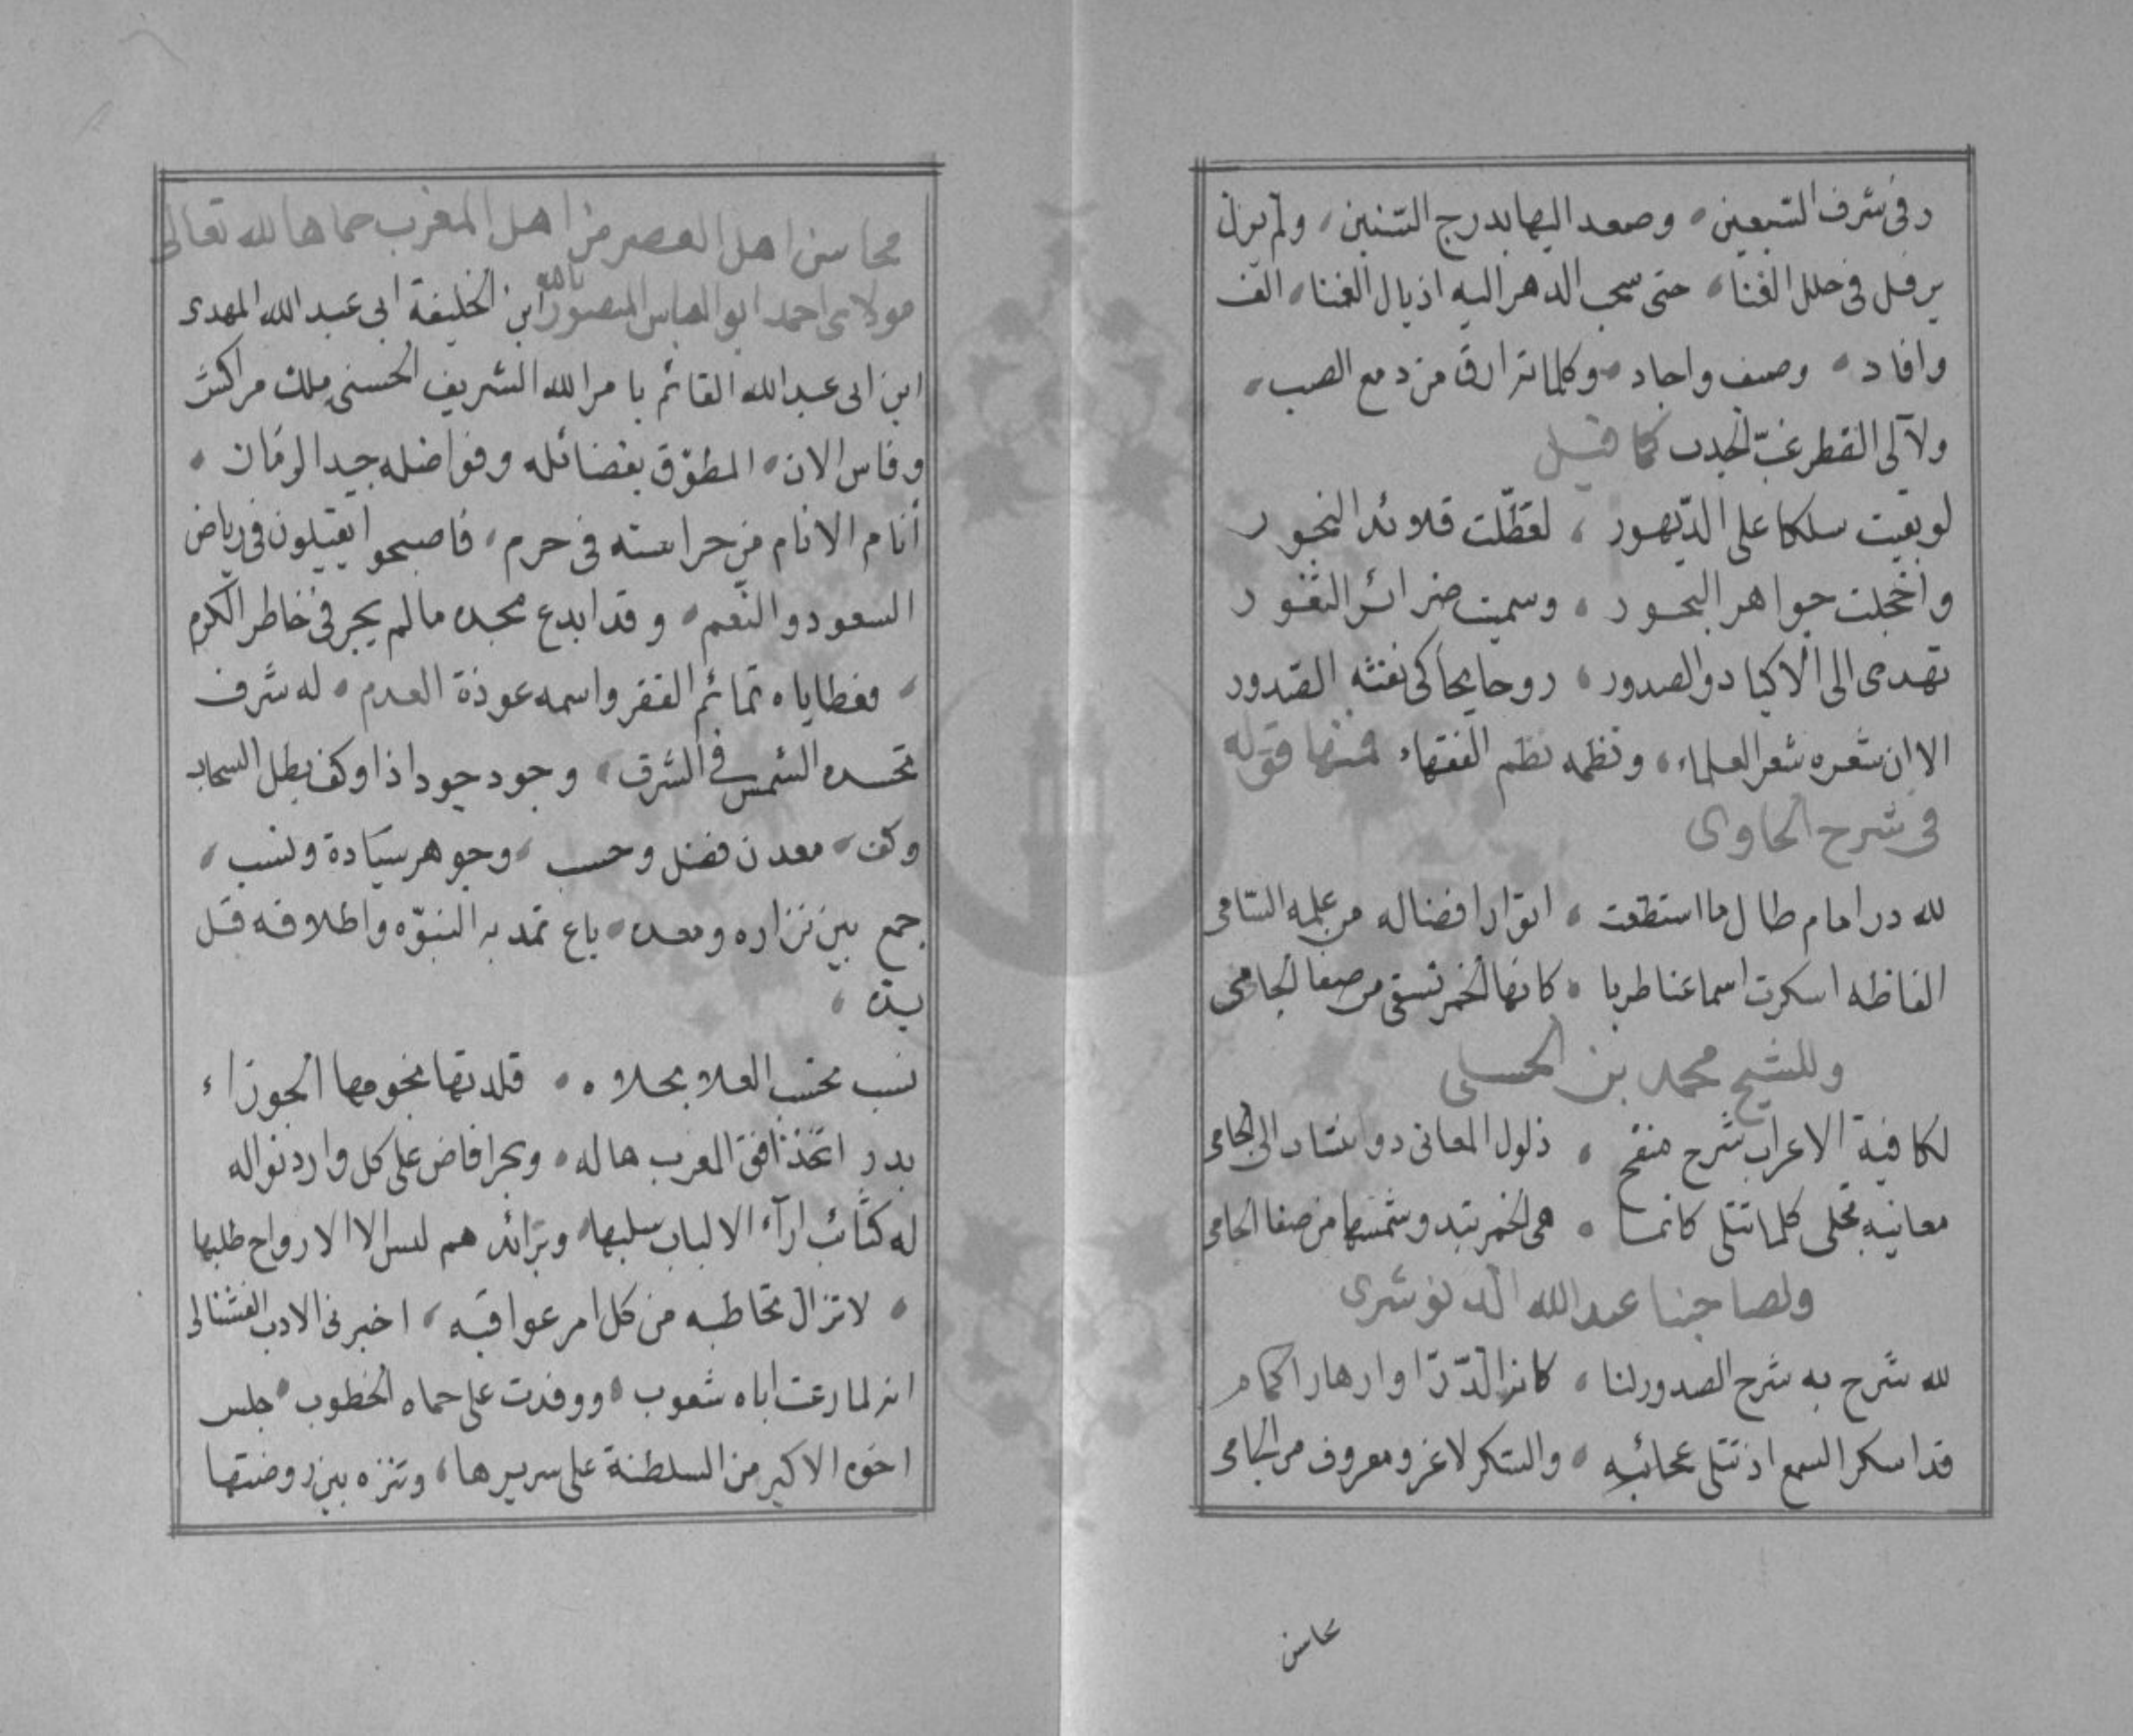 رقى شرف التسعين، وصعد اليها بدرج السنين، ولم يزل
يرفل فى حلل الغنا، حتى سحب الدهر اليه اذيال الفنا، الف
وافاد، وصنف واجاد، وكلماته ارق من دمع الصب،
ولآلى القطر غبّ الجدب كما قيل
لو بقيت سلكا على الدّهور، لعطّلت قلائد النحور
واخجلت جواهر البحور، وسميت ضرائر الثغور
تهدى الى الاكباد والصدور، روحا يحاكى نفثه الصدور
الا ان شعره شعر العلماء، ونظمه نظم الفقهاء فمنها قوله
فى شرح الحاوى
لله در امام طال ما استطعت، انوار افضاله من علمه السّامى
الفاظه اسكرت اسماعنا طربا، كانها الخمر تسقى من صفا الجامى
وللشيخ محمد بن الحسلى
لكافية الاعراب شرح منقح، ذلول المعانى ذو انتساب الى الجامى
معانيه تجلى كلما تتلى كانما، هى الخمر تبدو شمسها من صفا الجامى
ولصاحبنا عبد الله الدنوشرى
لله شرح به شرح الصدور لنا، كانه الدّرّ او ازهار اكمام
قد اسكر السمع اذ تتلى عجائبه، والسكر لا غرو معروف من الجامى
محاسن
محاسن اهل العصر من اهل المغرب حماها الله تعالى
مولاى احمد ابو العباس المنصور بالله ابن الخليفة ابى عبد الله المهدى
ابن ابى عبد الله القائم بامر الله الشريف الحسنى ملك مراكش
وفاس الان، المطوّق بفضائله وفواضله جيد الزمان،
أنام الانام من حراسته فى حرم، فاصبحوا يقيلون فى رياض
السعود والنّعم، وقد ابدع مجده ما لم يجر فى خاطر الكرم
، فعطاياه تمائم الفقر واسمه عوذة العدم، له شرف
تحسده الشمس فى الشرف، وجود جود اذا وكف بطل السحاب
وكف، معدن فضل وحسب، وجوهر سيادة ونسب،
جمع بين نزاره ومعده، باع تمد به النبوّه واطلاقه قبل
يده،
نسب تحسب العلا بحلاه، قلدتها نجومها الجوزاء
بدر اتخذ افق المغرب هاله، وبحر افاض على كل وارد نواله
له كتائب ارآء الالباب سلبها، وترائد هم ليس الا الارواح طلبها
، لا تزال تخاطبه من كل امر عواقبه، اخبرنى الادب الفشتالى
انه لما رعت اباه شعوب، ووفدت على حماه الخطوب، جلس
اخوه الاكبر من السلطنة على سريرها، وتنزه بين روضتها